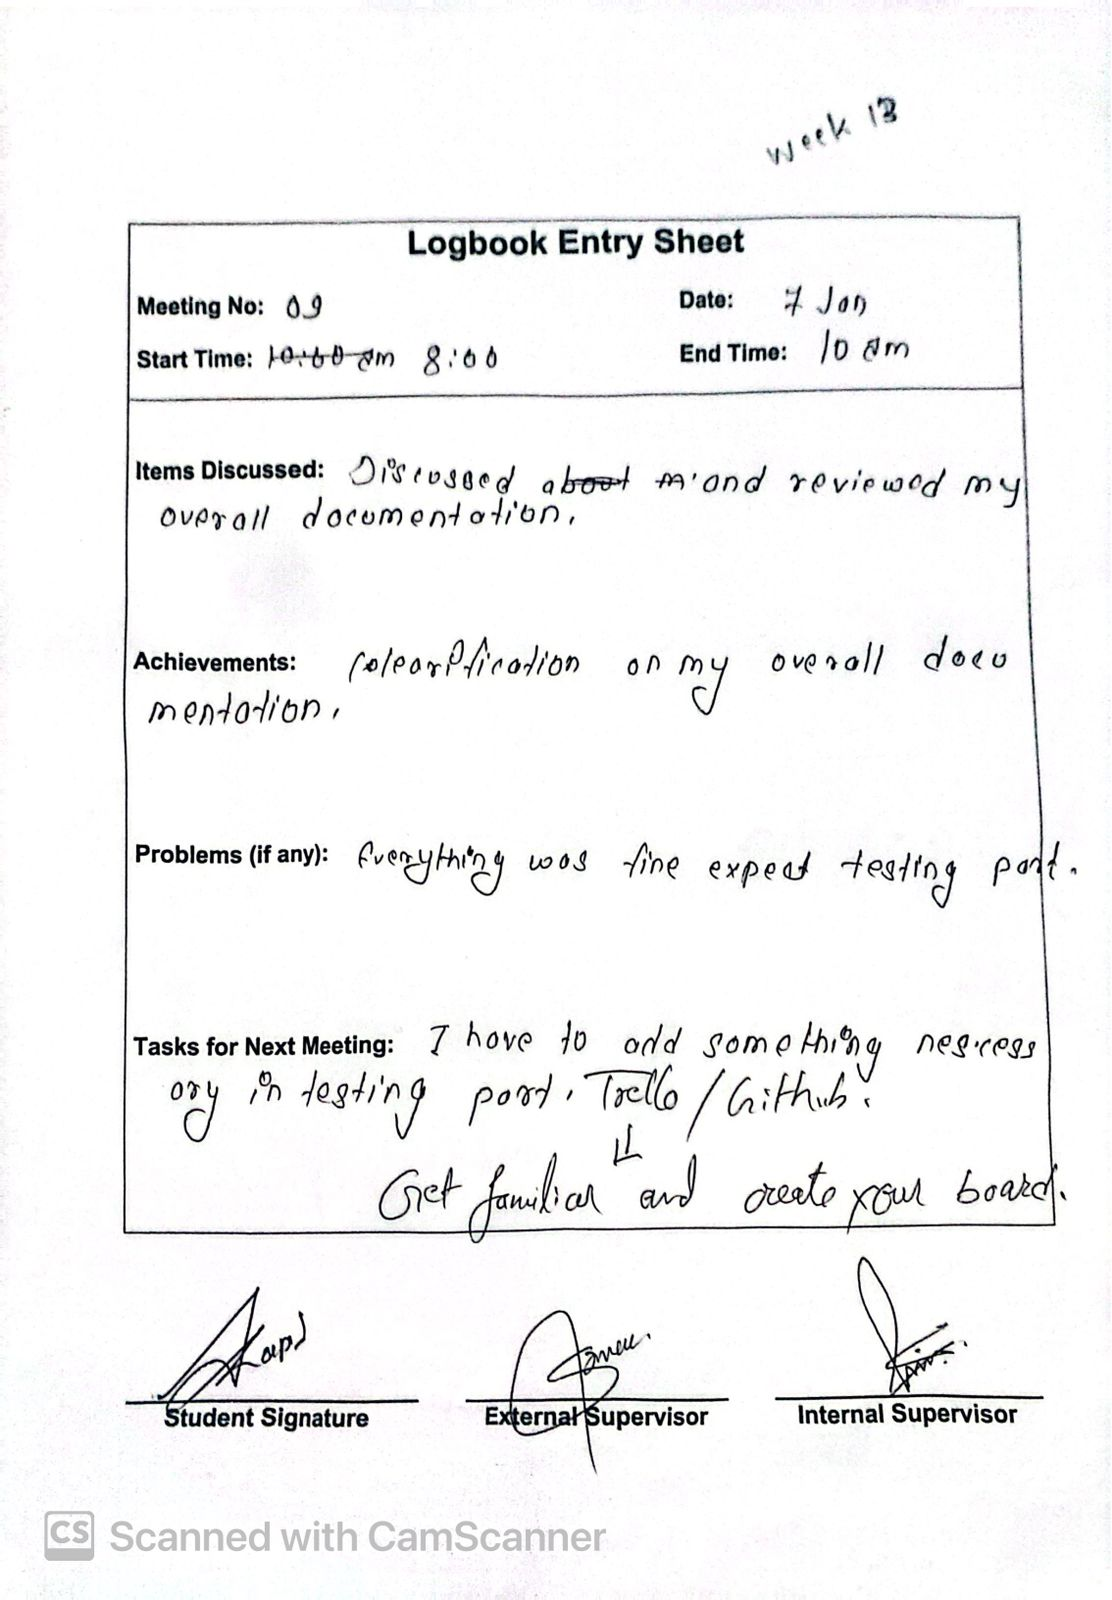 Week 13
Logbook Entry Sheet
Meeting No: 09
Date: 7 Jan
Start Time: 10:00 am 8:00
End Time: 10 am
Items Discussed: Discussed about m and reviewed my
overall documentation.
Achievements: on my overall docu
mentation.
Problems (if any): Everything was fine expect testing part.
Tasks for Next Meeting: I have to add something nescess
ary in testing part. Trello / Github.
Get familiar and create your board.
Student Signature
External Supervisor
Internal Supervisor
CS Scanned with CamScanner